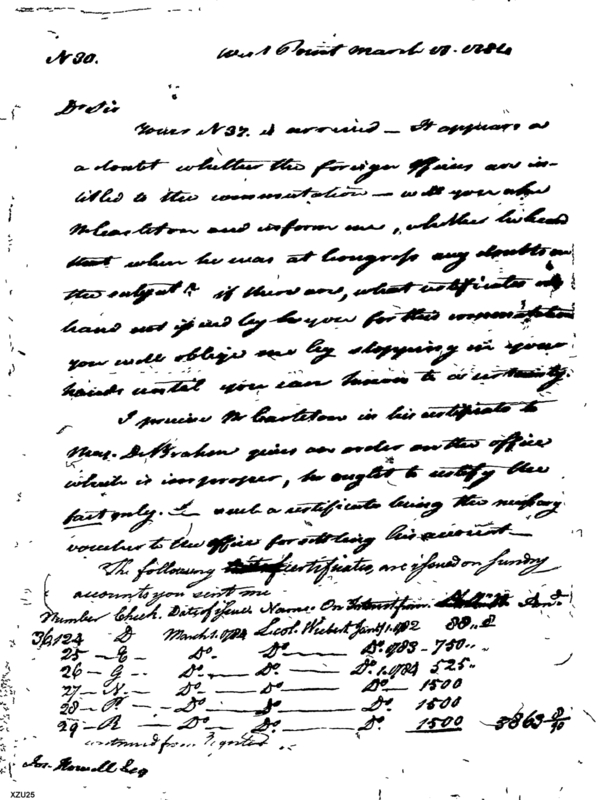 N 30. West Point March 10. 1784
Dr Sir
Yours N 37. is arrived — It appears a
a doubt whether the foreign officers are in-
titled to the commutation — will you ask
Mr Carleton and inform me, whether he heard
that when he was at Congress any doubts on
the subject? if there are, what certificates
hand not issued by you for their commutation
you will oblige me by stopping in your
hands until you can known to a certainty.
I perceive Mr Carleton in his certificate to
Maj. De Brahm gives an order on the office
which is improper, he ought to certify the
fact only. such a certificate being the necessary
voucher to the office for settling his account —
The following certificates, are issued on sundry
accounts you sent me
Number Check. Date of issue Name. On Interest from. Amt.
36,124 D March 1. 1784 Lt Col. Wiebert Jany 1. 1782 88
25 — E — Do — Do — Do. 1783 — 750
26 — G — Do — Do — Do. 1. 1784 525
27 — N — Do — Do — Do — 1500
28 — P — Do — Do — Do. 1500
29 — R — Do — Do. 1500 — 3863 8/90
continued from
Jos. Howell Esq
XZU25